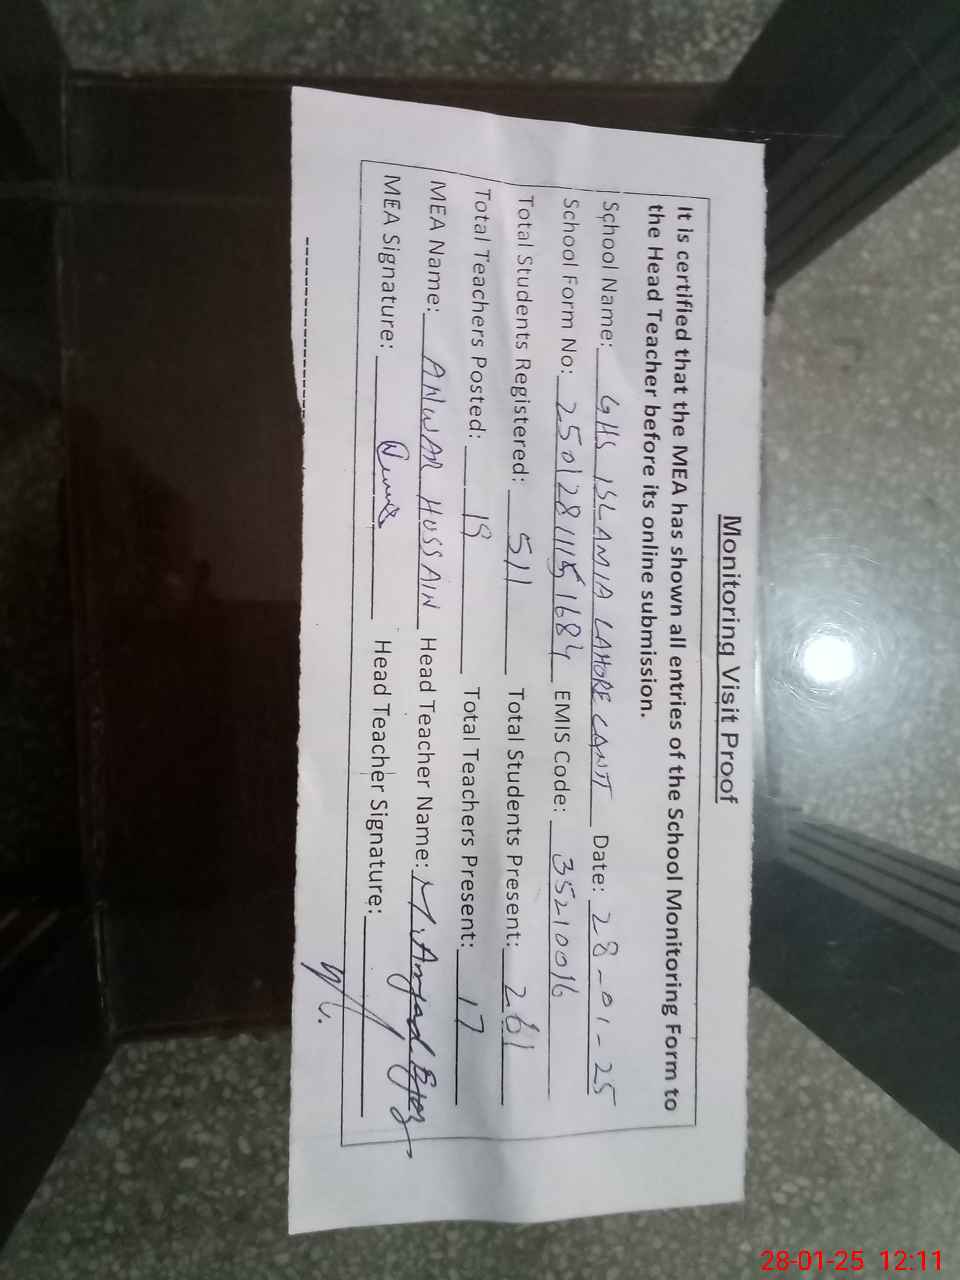 Monitoring Visit Proof
It is certified that the MEA has shown all entries of the School Monitoring Form to
the Head Teacher before its online submission.
School Name: GHS ISLAMIA LAHORE CANTT Date: 28-01-25
School Form No: 25012811151684 EMIS Code: 35210016
Total Students Registered: 511 Total Students Present: 261
Total Teachers Posted: 19 Total Teachers Present: 17
MEA Name: ANWAR HUSSAIN Head Teacher Name: M. Amjad
MEA Signature: Head Teacher Signature:
28-01-25 12:11